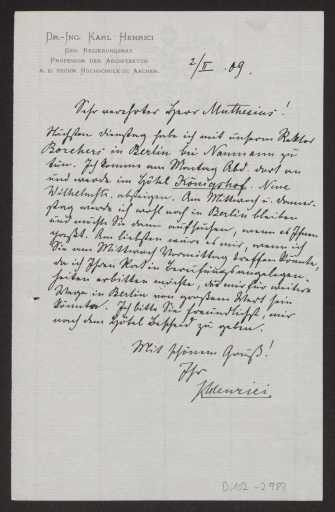 DR.-ING. KARL HENRICI
GEH. REGIERUNGSRAT
PROFESSOR DER ARCHITEKTUR
A. D. TECHN. HOCHSCHULE ZU AACHEN.
2/II. 09.
Sehr verehrter Herr Muthesius!
Nächsten Dienstag habe ich mit unserem Rektor
Borchers in Berlin bei Naumann zu
tun. Ich komme am Montag Abd. dort an
und werde im Hôtel Königshof. Neue
Wilhelmstr. absteigen. Am Mittwoch u. Donner-
stag werde ich wohl noch in Berlin bleiben
und möchte Sie dann aufsuchen, wenn es Ihnen
paßt. Am liebsten wäre es mir, wenn ich
Sie am Mittwoch Vormittag treffen könnte,
da ich Ihren Rat in Berufungsangelegen-
heiten erbitten möchte, der mir für weitere
Wege in Berlin von großem Wert sein
könnte. Ich bitte Sie freundlichst, mir
nach dem Hôtel Bescheid zu geben.
Mit schönem Gruß!
Ihr
KHenrici
D102-2988